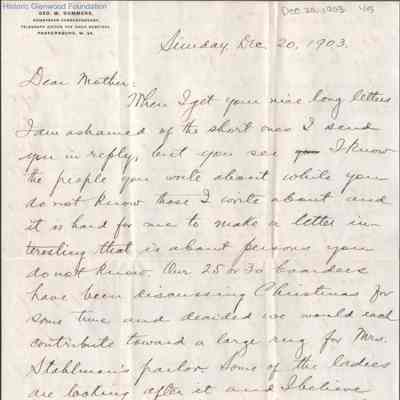 Historic Glenwood Foundation
GEO. W. SUMMERS,
PARKERSBURG, W. VA.
Dec 20, 1903
Sunday, Dec. 20, 1903.
Dear Mother:
When I get your nice long letters
I am ashamed of the short ones I send
you in reply, but you see you I know
the people you write about while you
do not know those I write about and
it is hard for me to make a letter in-
teresting that is about persons you
do not know. Our 25 or 30 boarders
have been discussing Christmas for
some time and decided we would each
contribute toward a large rug for Mrs.
Stahlman's parlor. Some of the ladies
are looking after it and I believe